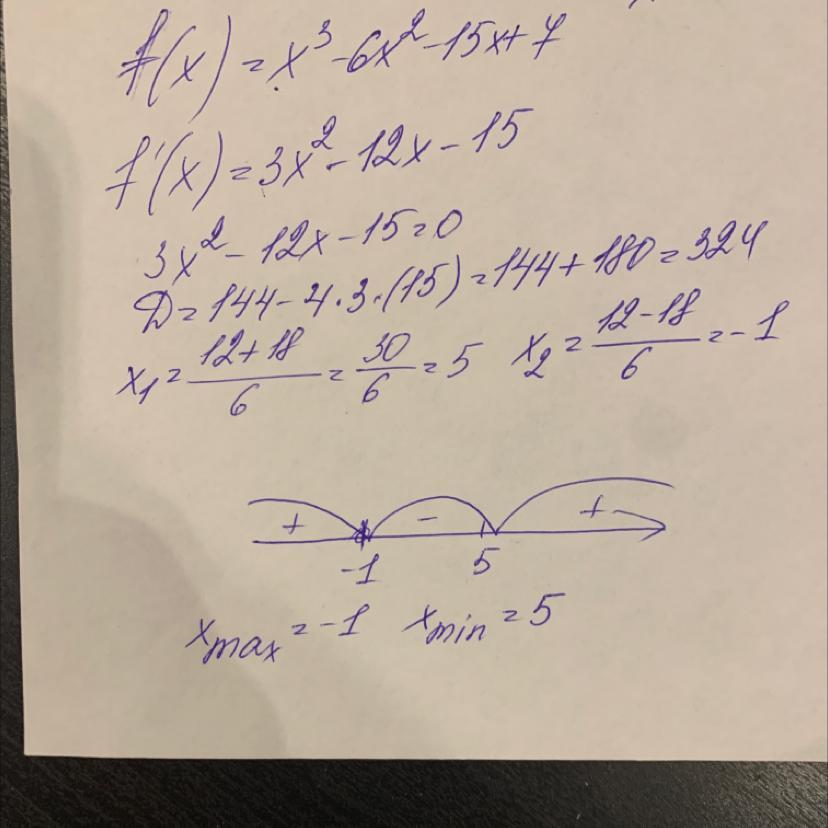 f(x) = x³ - 6x² - 15x + 7
f'(x) = 3x² - 12x - 15
3x² - 12x - 15 = 0
D = 144 - 4·3·(15) = 144 + 180 = 324
x₁ = (12+18)/6 = 30/6 = 5 x₂ = (12-18)/6 = -1
+ - +
-1 5
xmax = -1 xmin = 5